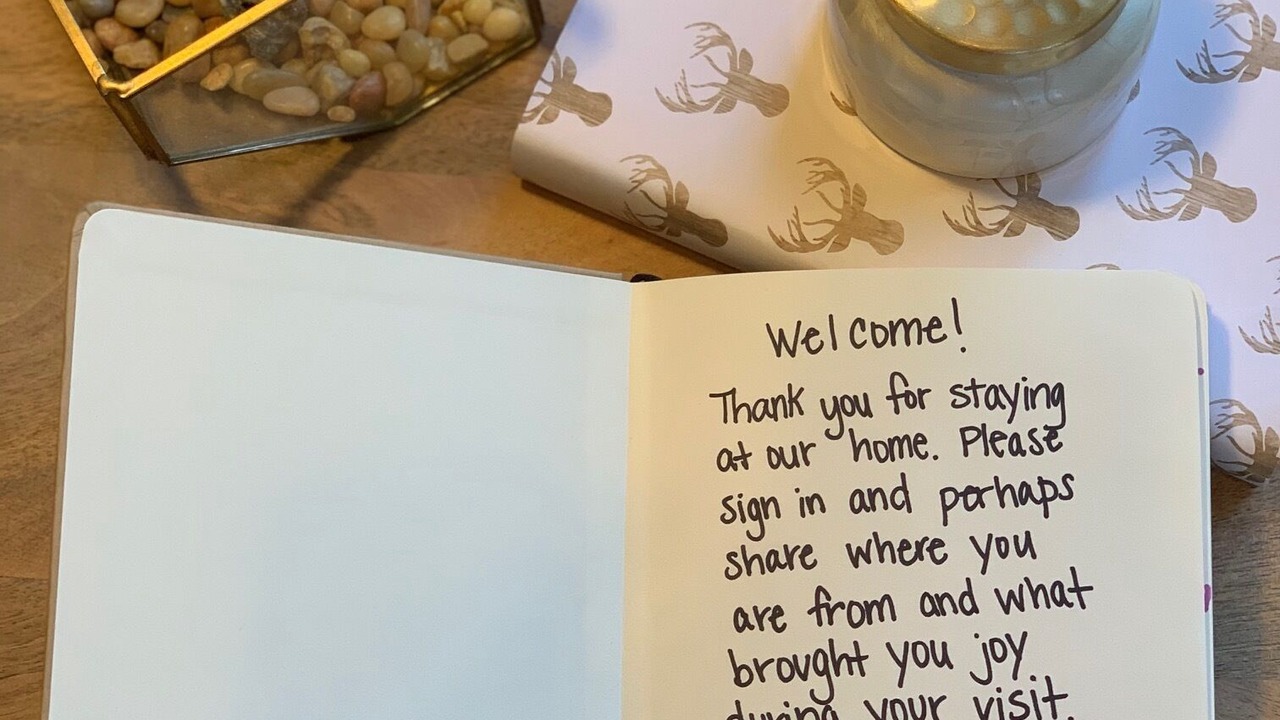 Welcome!
Thank you for staying
at our home. Please
sign in and perhaps
share where you
are from and what
brought you joy
during your visit.